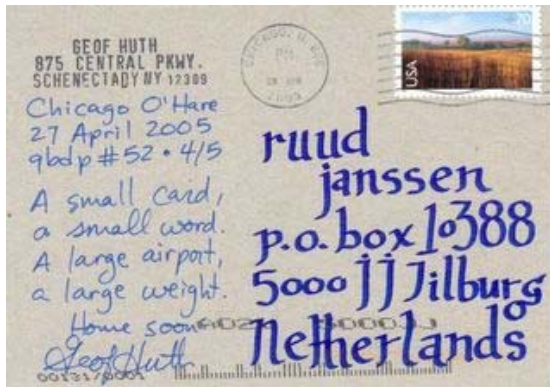 GEOF HUTH
875 CENTRAL PKWY.
SCHENECTADY NY 12309
Chicago O'Hare
27 April 2005
qbdp #52 • 4/5
A small card,
a small word.
A large airport,
a large weight.
Home soon
Geof Huth
CHICAGO, IL
PM
2005
70
USA
ruud
janssen
p.o. box 10388
5000 jj Tilburg
Netherlands